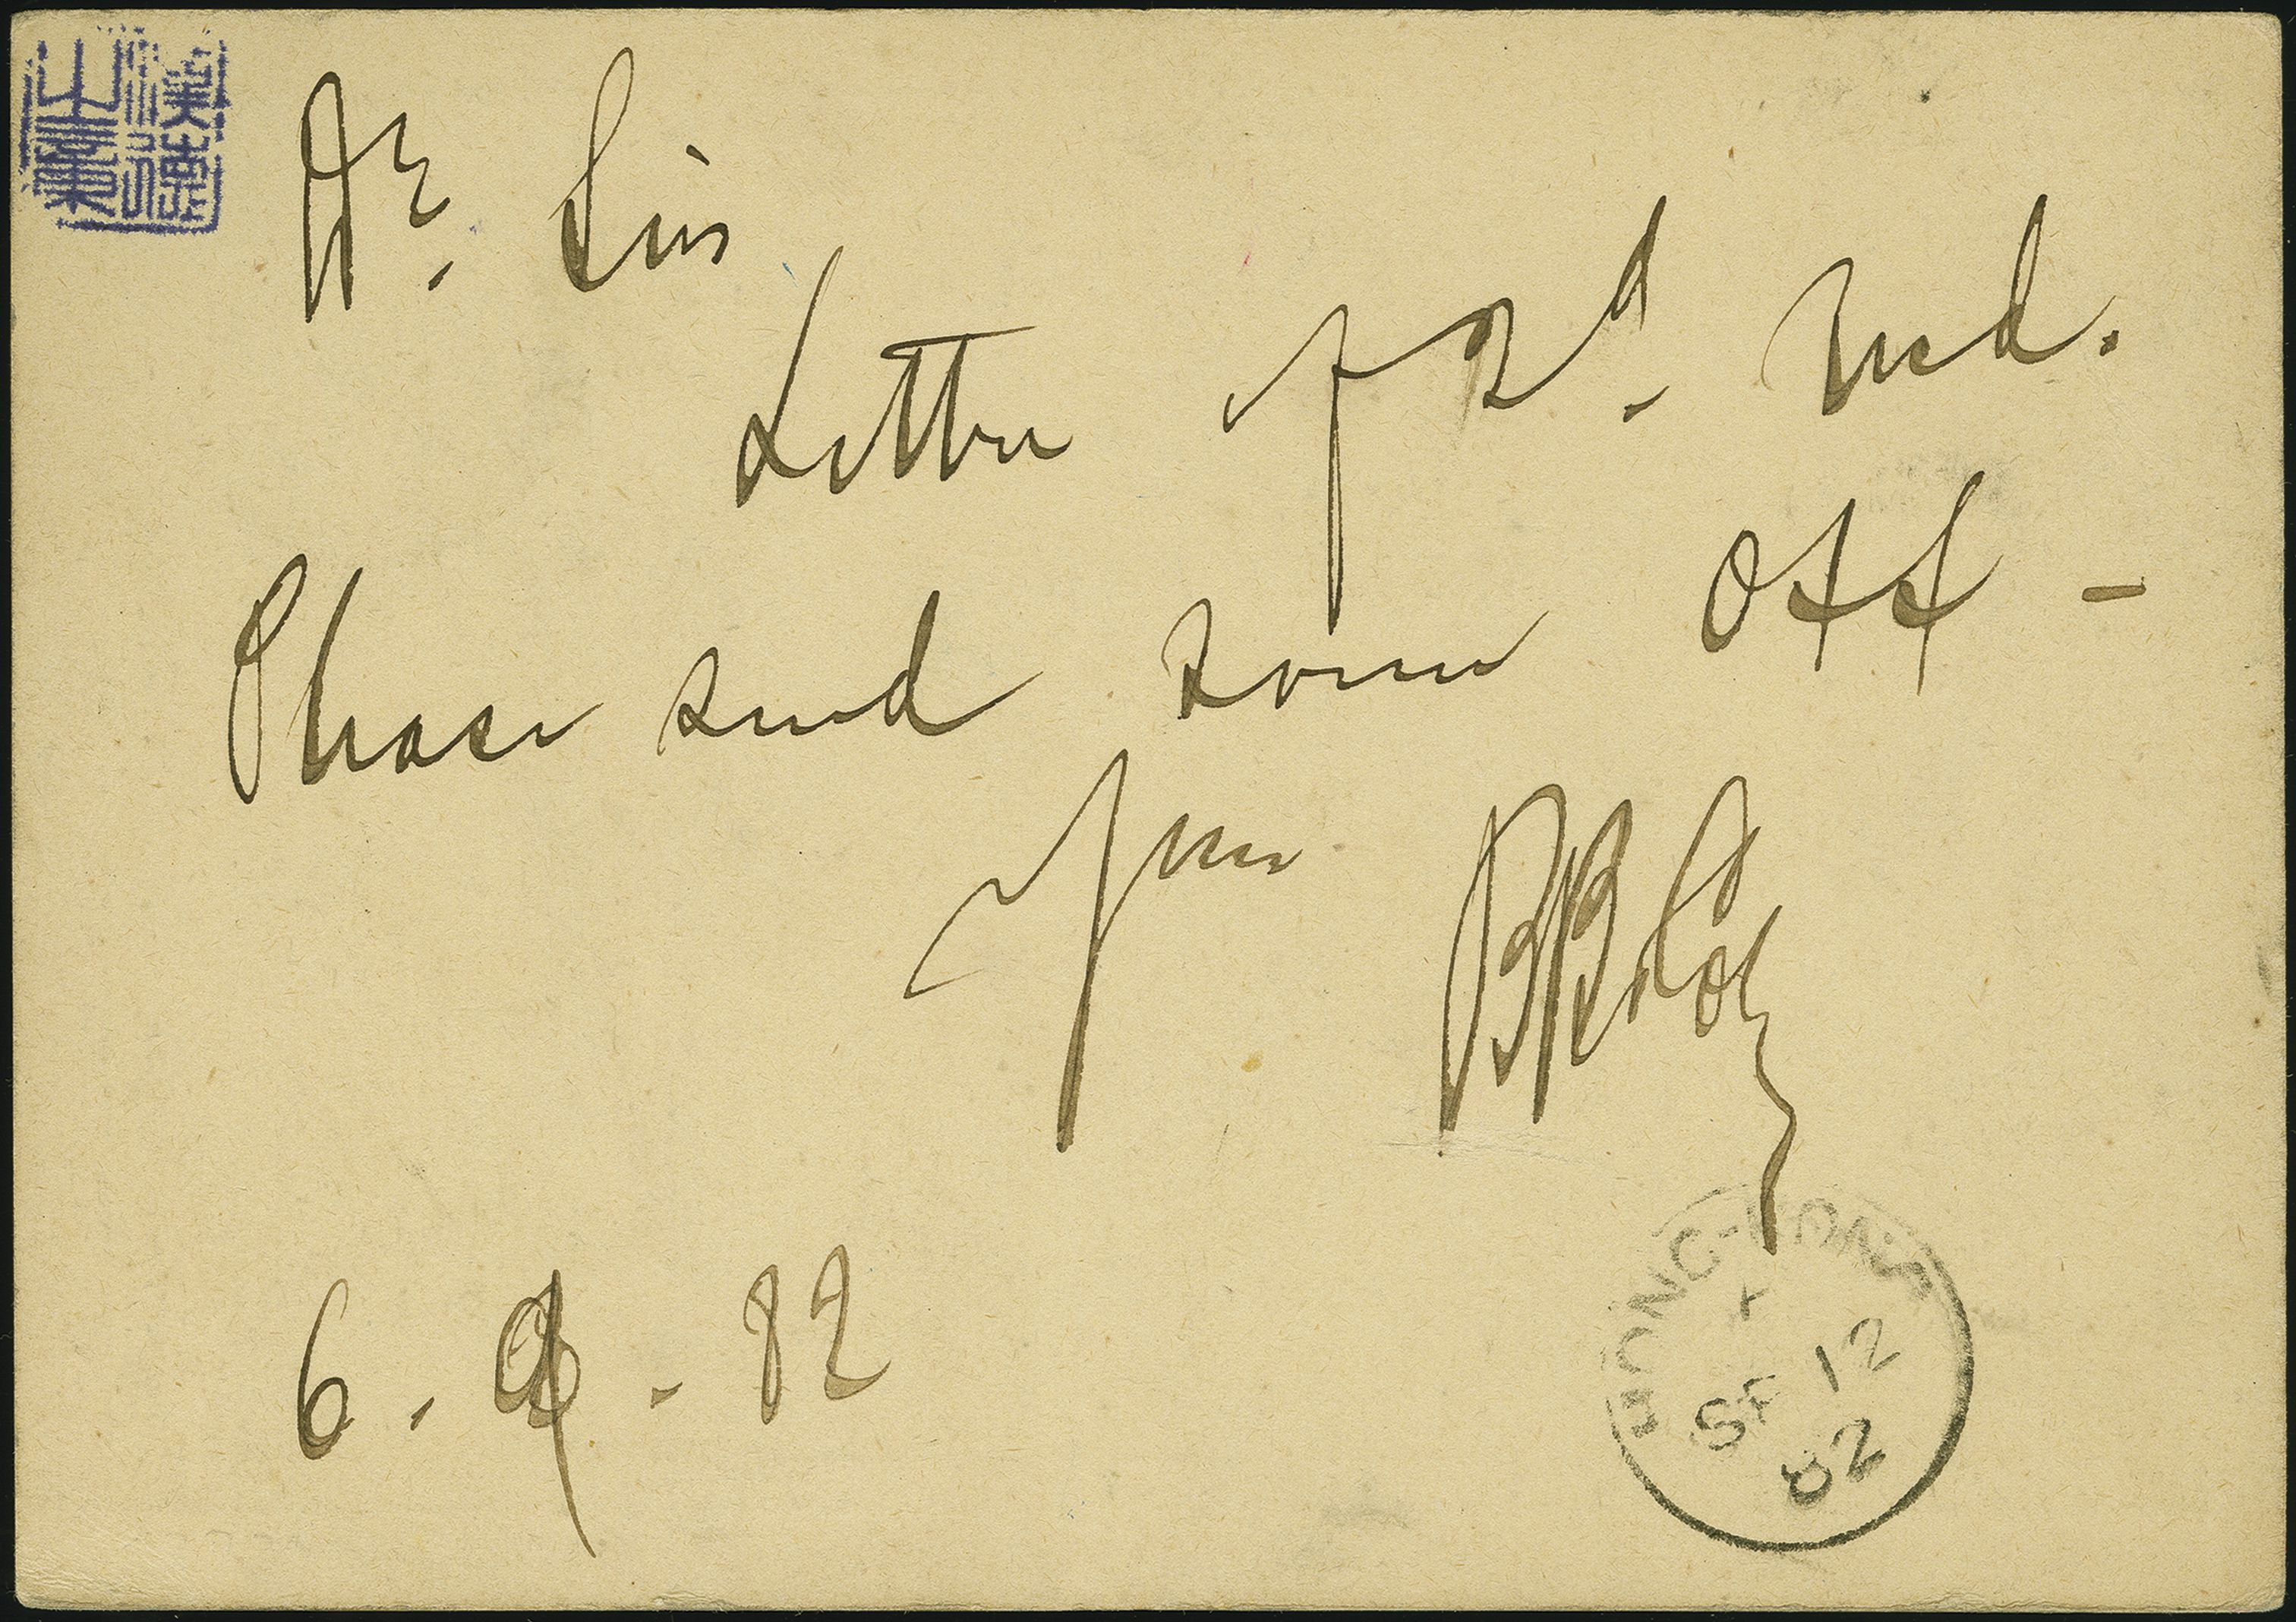 Dr. Sir
Letter of 2d. recd.
Please send some off -
Yours
6. 9. 82
HONG-KONG
SE 12
82